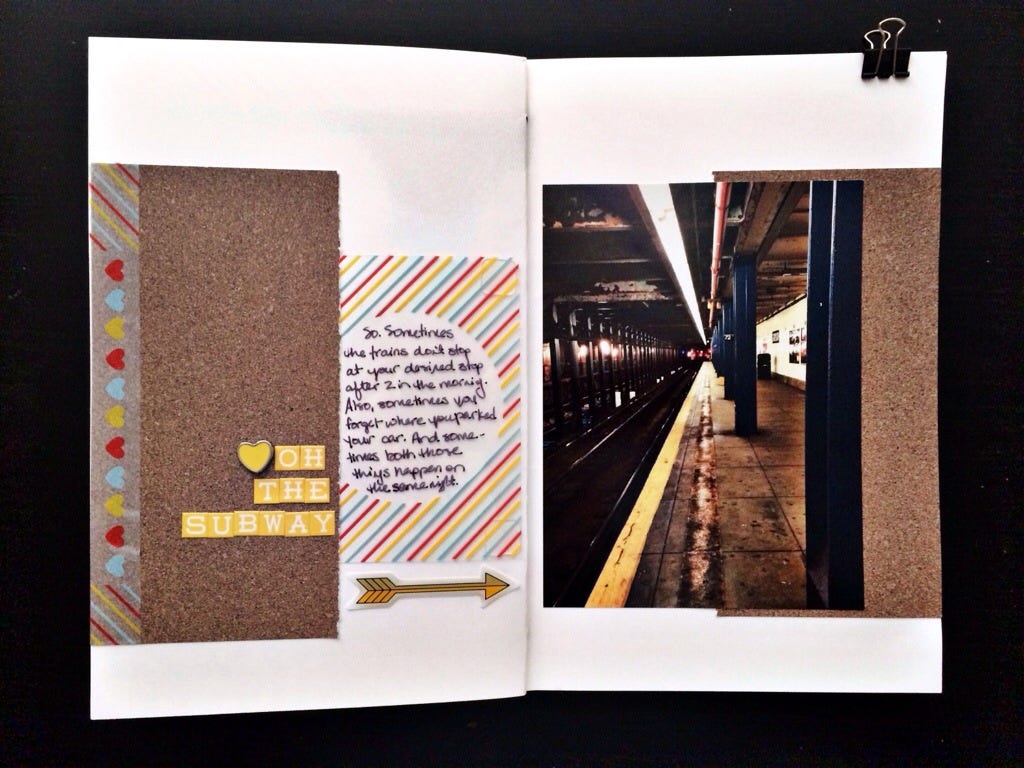 OH
THE
SUBWAY
So. Sometimes
the trains don't stop
at your desired stop
after 2 in the morning.
Also, sometimes you
forget where you parked
your car. And some-
times both those
things happen on
the same night.